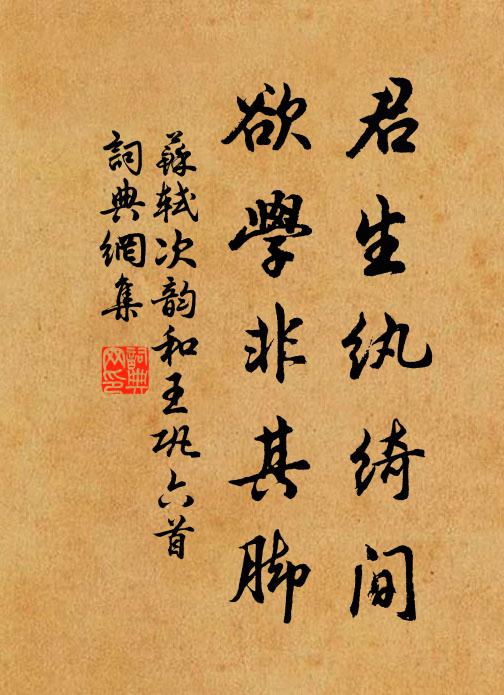 君生纨綺間
欲學非其脚
蘇轼次韵和王巩六首
詞典網集
詞典
网印